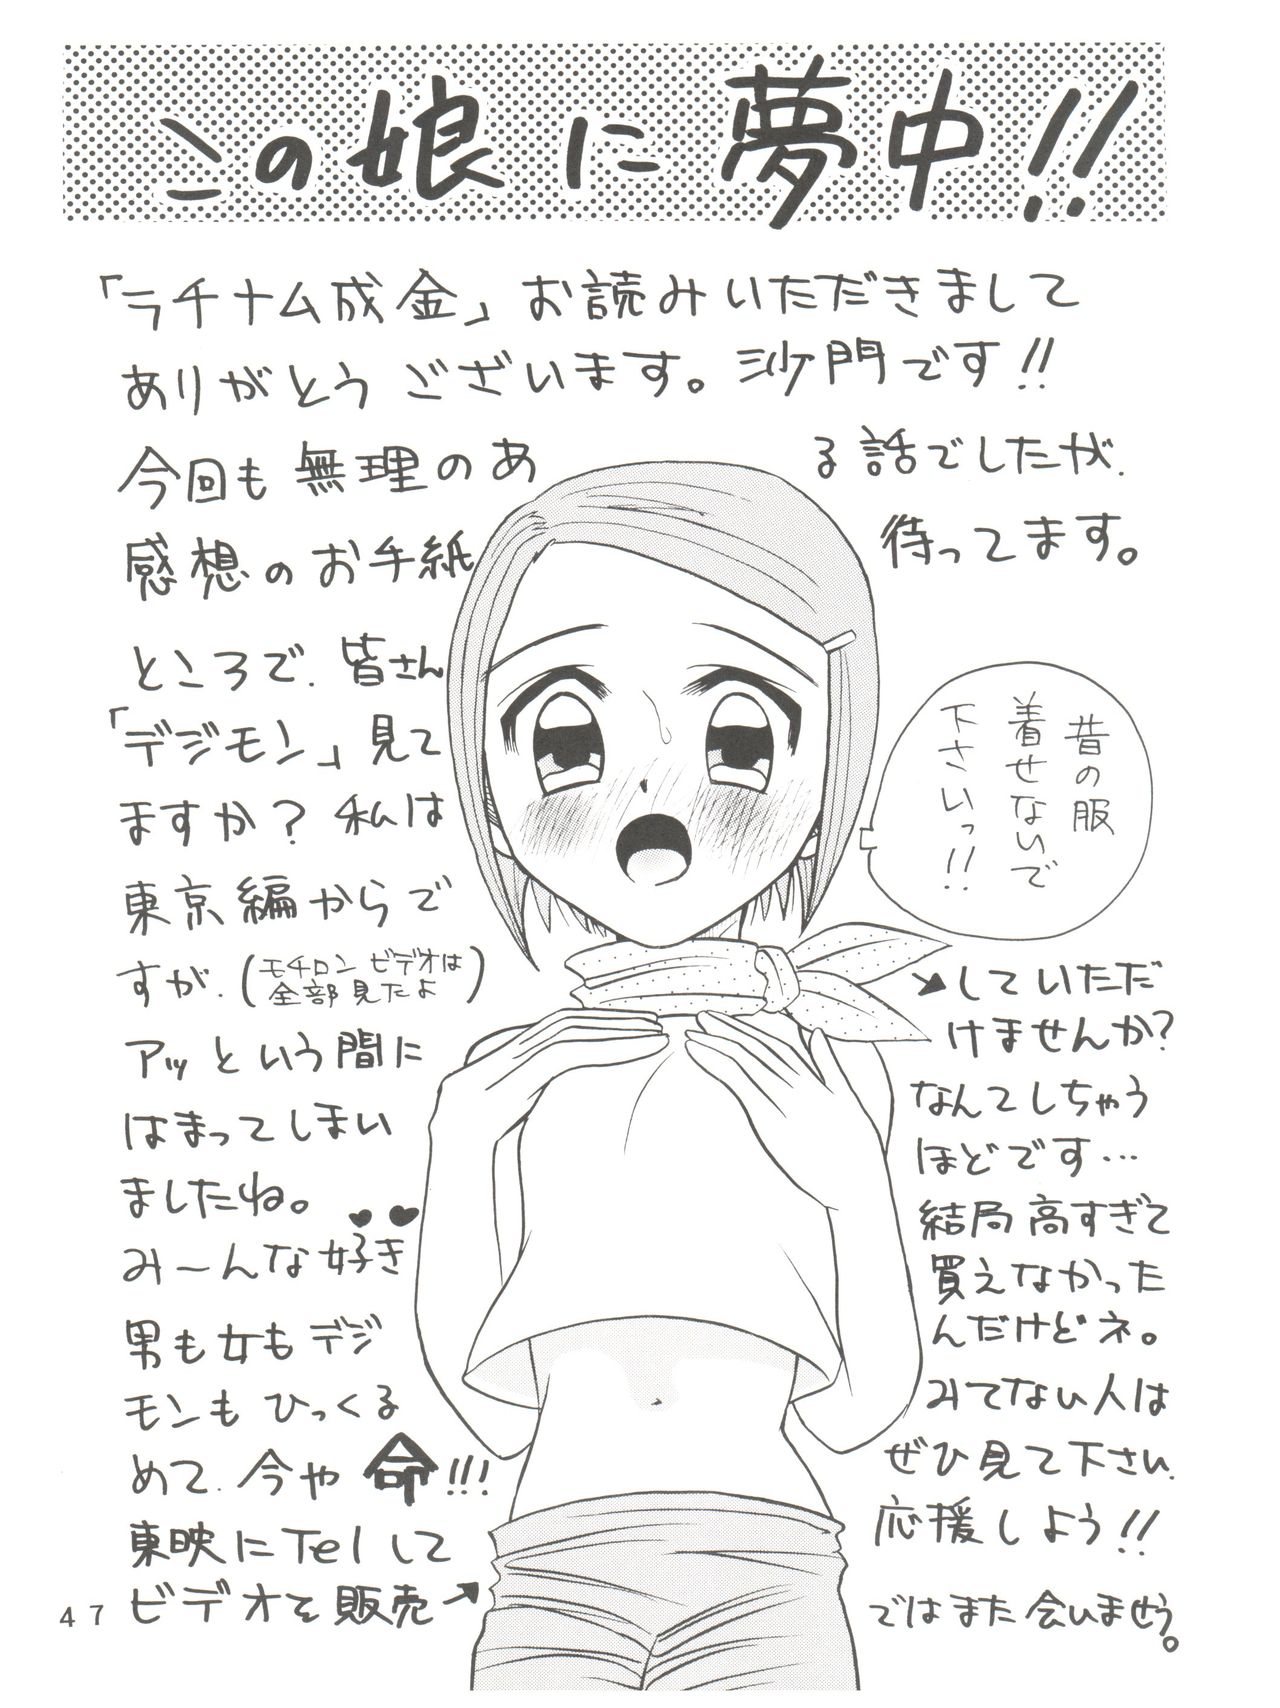 この娘に夢中!!
「ラチナム成金」お読みいただきまして
ありがとうございます。沙門です!!
今回も無理のある話でしたが.
感想のお手紙待ってます。
ところで.皆さん
「デジモン」見て
ますか?私は
東京編からで
すが.(モチロンビデオは
全部見たよ)
アッという間に
はまってしまい
ましたね。
み〜んな好き♥♥
男も女もデジ
モンもひっくる
めて.今や命!!!
東映にTelして
ビデオを販売↗
昔の服
着せないで
下さいっ!!
↘していただ
けませんか?
なんてしちゃう
ほどです…
結局高すぎて
買えなかった
んだけどネ。
みてない人は
ぜひ見て下さい.
応援しよう!!
ではまた会いませう。
47